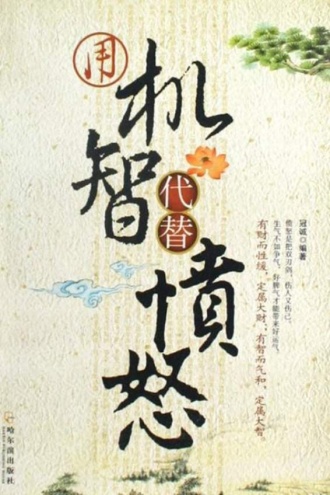 用机智代替愤怒
冠诚◎编著
愤怒是把双刃剑，伤人又伤己。
生气不如争气，好脾气才能带来好运气。
有财而性缓，定属大财；有智而气和，定属大智。
哈尔滨出版社